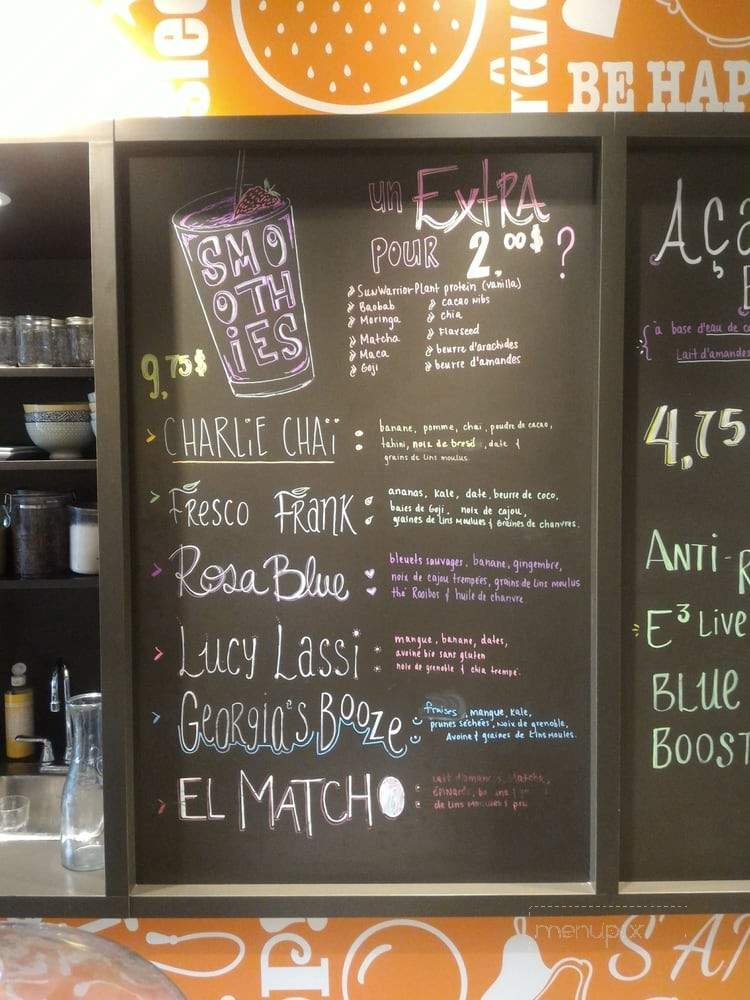 rêve
BE HAP
un Extra
pour 2,00$ ?
SMOOTHIES
9,75$
» SunWarrior Plant protein (vanilla)
» Baobab
» Moringa
» Matcha
» Maca
» Goji
» cacao nibs
» chia
» Flaxseed
» beurre d'arachides
» beurre d'amandes
> CHARLIE CHAÏ : banane, pomme, chai, poudre de cacao,
tahini, noix de bresil, date &
grains de lins moulus.
> Fresco Frank : ananas, kale, date, beurre de coco,
baies de Goji, noix de cajou,
graines de lins Moulues & Graines de chanvres.
> Rosa Blue : bleuets sauvages, banane, gingembre,
noix de cajou trempées, grains de lins moulus
thé Rooibos & huile de chanvre.
> Lucy Lassi : mangue, banane, dates,
avoine bio sans gluten
noix de grenoble & chia trempé.
> Georgia's Booze : fraises, mangue, kale,
prunes séchées, noix de grenoble,
Avoine & graines de Lins Moules.
> EL MATCHO : Matcha,
de Lins Moulues &
Aça
à base d'eau de co
Lait d'amandes
4,75
ANTI-
E3 Live
BLUE
BOOST
menupix
SA